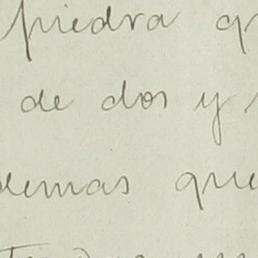 piedra q
de dos y
demas que